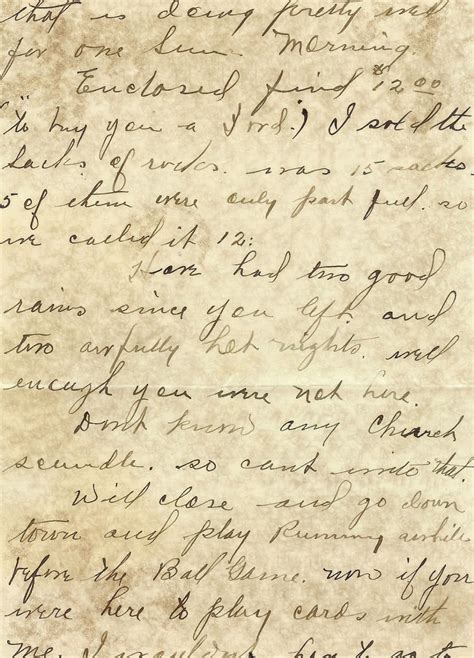 that is doing pretty well
for one Sun. Morning.
Enclosed find $12.00
("to buy you a Ford.) I sold the
sacks of rocks. was 15 sacks
5 of them were only part full. so
we called it 12:
Have had two good
rains since you left and
two awfully hot nights. well
enough you were not here.
Dont know any Church
scandle. so cant write that.
Will close and go down
town and play Rummy awhile
before the Ball Game. now if you
were here to play cards with
me. I wouldnt have to go to